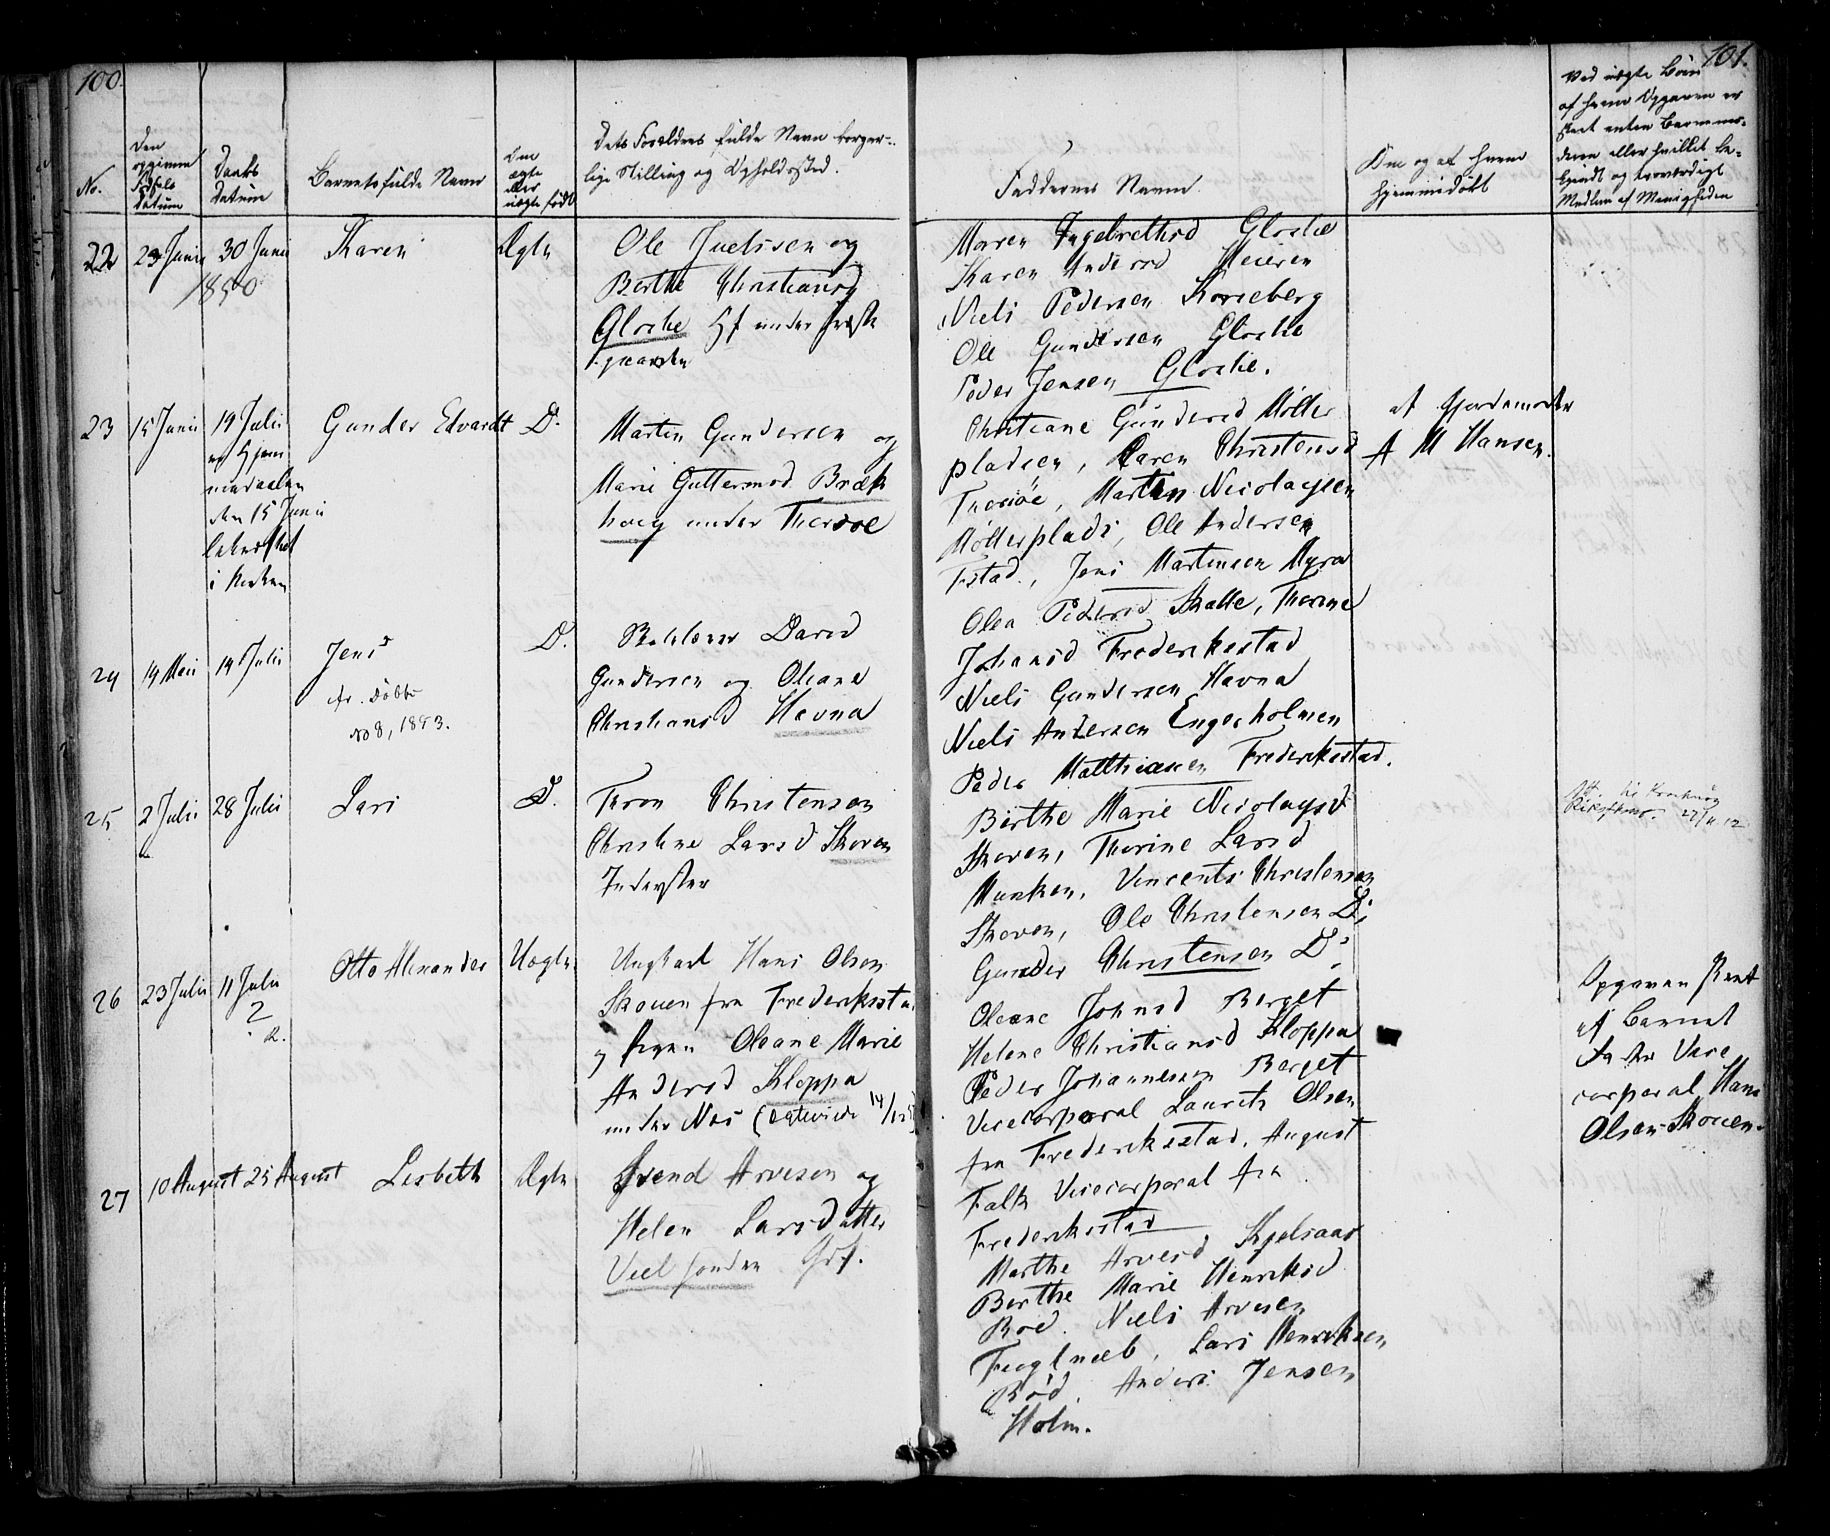 100.
101.
No.
Den
opgivne
Fødsels
Datum
Daabs
Datum
Barnets fulde Navn
Om
ægte
eller
uægte født
Dets Forældres fulde Navn borger-
lige Stilling og Opholdssted.
Faddernes Navne.
Om og af hvem
hjemmedøbt
Ved uægte Børn
af hvem Opgaven er
skeet enten Barnemo-
deren eller hvilket be-
kjendt og troværdigt
Medlem af Menigheden
22
23 Junii
30 Junii
1850
Karen
Ægte
Ole Juelssen og
Berthe Christiansd
Glosli Hf under Præste
gaarden
Maren Ingebrethsd Gloslie
Karen Andersd Meieren
Niels Pedersen Korseberg
Ole Gundersen Gloslie
Peder Jensen Gloslie.
23
15 Junii
14 Julii
Hjem
medaaben
den 15 Junii
bekræftet
i Kirken
Gunder Edvardt
D.
Martin Gundersen og
Marie Guttormsd Bræk
houg under Thorsøe
Christiane Gundersd Møller
pladsen, Karen Christensd
Thorsøe, Martin Nicolaysen
Møllerplads, Ole Andersen
stad., Jens Martinsen Myra
af Gjordemoder
A M Hansen.
24
14 Maii
14 Julii
Jens
Av. Døbte
No 8, 1893.
D.
David
Gundersen og Oleane
Christiansd Havna
Olea Pedersd Skolle, Thorine
Johansd Frederikstad
Niels Gundersen Havna
Niels Andersen Engesholmen
Peder Matthiasen Frederiksstad.
25
2 Julii
28 Julii
Lars
D.
Thron Christensen
Christine Larsd Skoven
Inderster
Berthe Marie Nicolaysd
Skoven, Thorine Larsd
Munken, Vincents Christensen
Skoven, Ole Christensen D;
Gunder Christensen D;
26
23 Julii
11 Julii
?
Otto Alexander
Uægte
Ungkarl Hans Olsen
Skouen fra Frederiksstad
og Pigen Oleane Marie
Andersd Kloppa
under Næs
Oleane Johnsd Berget
Helene Christiansd Kloppa
Peder Johannessen Berget
Vicecorporal Laurits Olsen
fra Frederiksstad, August
Falk Vicecorporal fra
Frederiksstad
Opgaven skeet
af Barnet
Fader Vice
corporal Hans
Olsen Skouen.
27
10 August
25 August
Lisbeth
Ægte
Svend Arvesen og
Helen Larsdatter
Viel søndre
Marthe Arvesd Kjølsaas
Berthe Marie Henriksd
Bød. Niels Arvesen
Fuglnæb, Lars Henriksen
Bød, Anders Jensen
Holm.